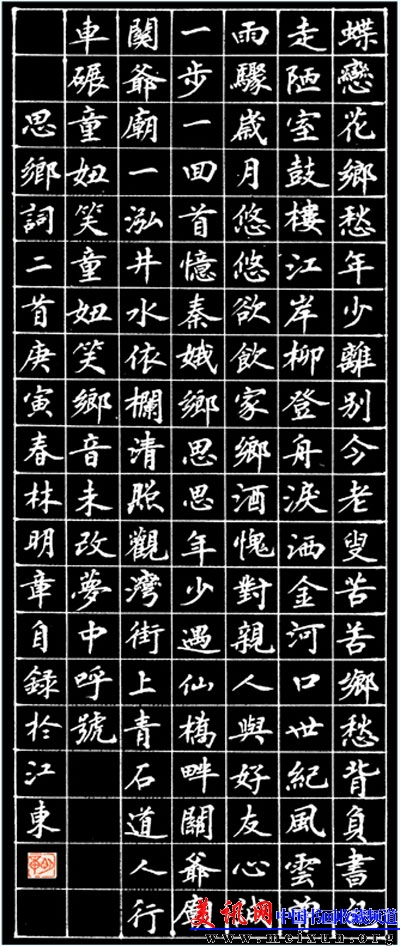 蝶戀花鄉愁年少離別今老叟苦苦鄉愁背負書包
走陋室鼓樓江岸柳登舟淚洒金河口世紀風雲
雨驟歲月悠悠欲飲家鄉酒愧對親人與好友心
一步一回首憶秦娥鄉思思年少遇仙橋畔關爺廟
關爺廟一泓井水依欄清照觀灣街上青石道人行
車碾童妞笑童妞笑鄉音未改夢中呼號
思鄉詞二首庚寅春林明章自錄於江東
美讯网 中国书画收藏频道
www.meixun.org